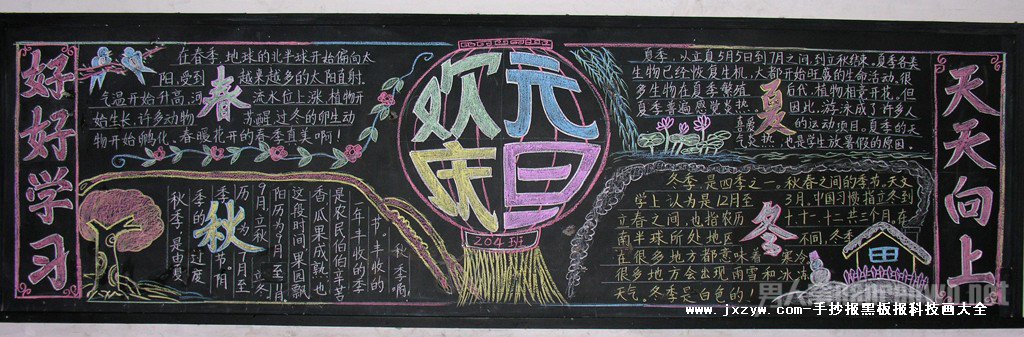 好好学习
在春季,地球的北半球开始偏向太
阳,受到 越来越多的太阳直射,
气温开始升高,河 流水位上涨,植物开
始生长,许多动物 苏醒,过冬的卵生动
物开始孵化、春暖花开的春季真美啊!
春
欢庆
元旦
204班
夏季,从立夏5月5日到7月之间,到立秋结束,夏季各类
生物已经恢复生机,大都开始旺盛的生命活动。很
多生物在夏季繁殖 后代,植物相竞开花,但
夏季普遍感觉炎热。 因此,游泳成了许多人
喜爱 的运动项目。夏季的天
气炎热,也是学生放暑假的原因。
夏
天天向上
秋季啊,
一节。丰收的
一年丰收的季
是农民伯伯辛苦
香瓜果成就,也
这段时间,果园飘
阳历为9月至11月。
9月立秋 立冬
历为 7月至
季 节。阴
季的 过度
秋季,是由夏
秋
冬季,是四季之一。秋春之间的季节。天文
学上认为是12月至 3月,中国习惯指立冬到
立春之间,也指农历 十、十一、十二共三个月。在
南半球所处地区 不同,冬季
在很多地方都意味着 寒冷
很多地方会出现雨雪和冰冻
天气。冬季是白色的!
冬
www.jxzyw.com-手抄报黑板报科技画大全